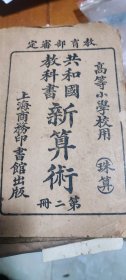 教育部審定
高等小學校用
共和國教科書
新算術
珠算
第二冊
上海商務印書館出版